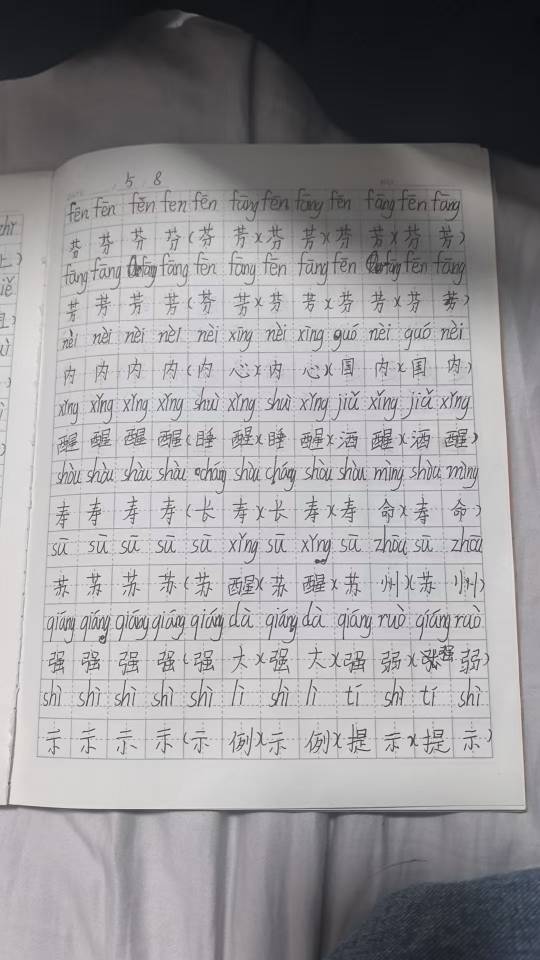 5 8
fēn fēn fěn fen fēn fāng fēn fāng fēn fāng fēn fāng
芬 芬 芬 芬 ( 芬 芳 x 芬 芳 x 芬 芳 x 芬 芳 )
fāng fāng fāng fāng fēn fāng fēn fāng fēn fāng fēn fāng
芳 芳 芳 芳 ( 芬 芳 x 芬 芳 x 芬 芳 x 芬 芳 )
nèi nèi nèi nèi nèi xīng nèi xīng guó nèi guó nèi
内 内 内 内 ( 内 心 x 内 心 x 国 内 x 国 内 )
xǐng xǐng xǐng xǐng shuì xǐng shuì xǐng jiǔ xǐng jiǔ xǐng
醒 醒 醒 醒 ( 睡 醒 x 睡 醒 x 酒 醒 x 酒 醒 )
shòu shòu shòu shòu cháng shòu cháng shòu shòu mìng shòu mìng
寿 寿 寿 寿 ( 长 寿 x 长 寿 x 寿 命 x 寿 命 )
sū sū sū sū sū xǐng sū xǐng sū zhōu sū zhōu
苏 苏 苏 苏 ( 苏 醒 x 苏 醒 x 苏 州 x 苏 州 )
qiáng qiáng qiáng qiáng qiáng dà qiáng dà qiáng ruò qiáng ruò
强 强 强 强 ( 强 大 x 强 大 x 强 弱 x 强 弱 )
shì shì shì shì shì lì shì lì tí shì tí shì
示 示 示 示 ( 示 例 x 示 例 x 提 示 x 提 示 )